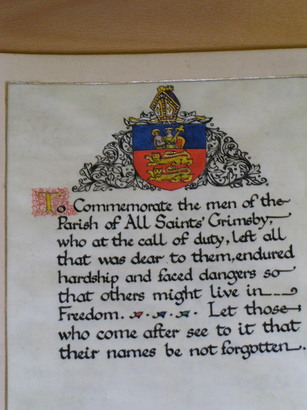 To Commemorate the men of the
Parish of All Saints' Grimsby,
who at the call of duty, left all
that was dear to them, endured
hardship and faced dangers so
that others might live in
Freedom. Let those
who come after see to it that
their names be not forgotten.